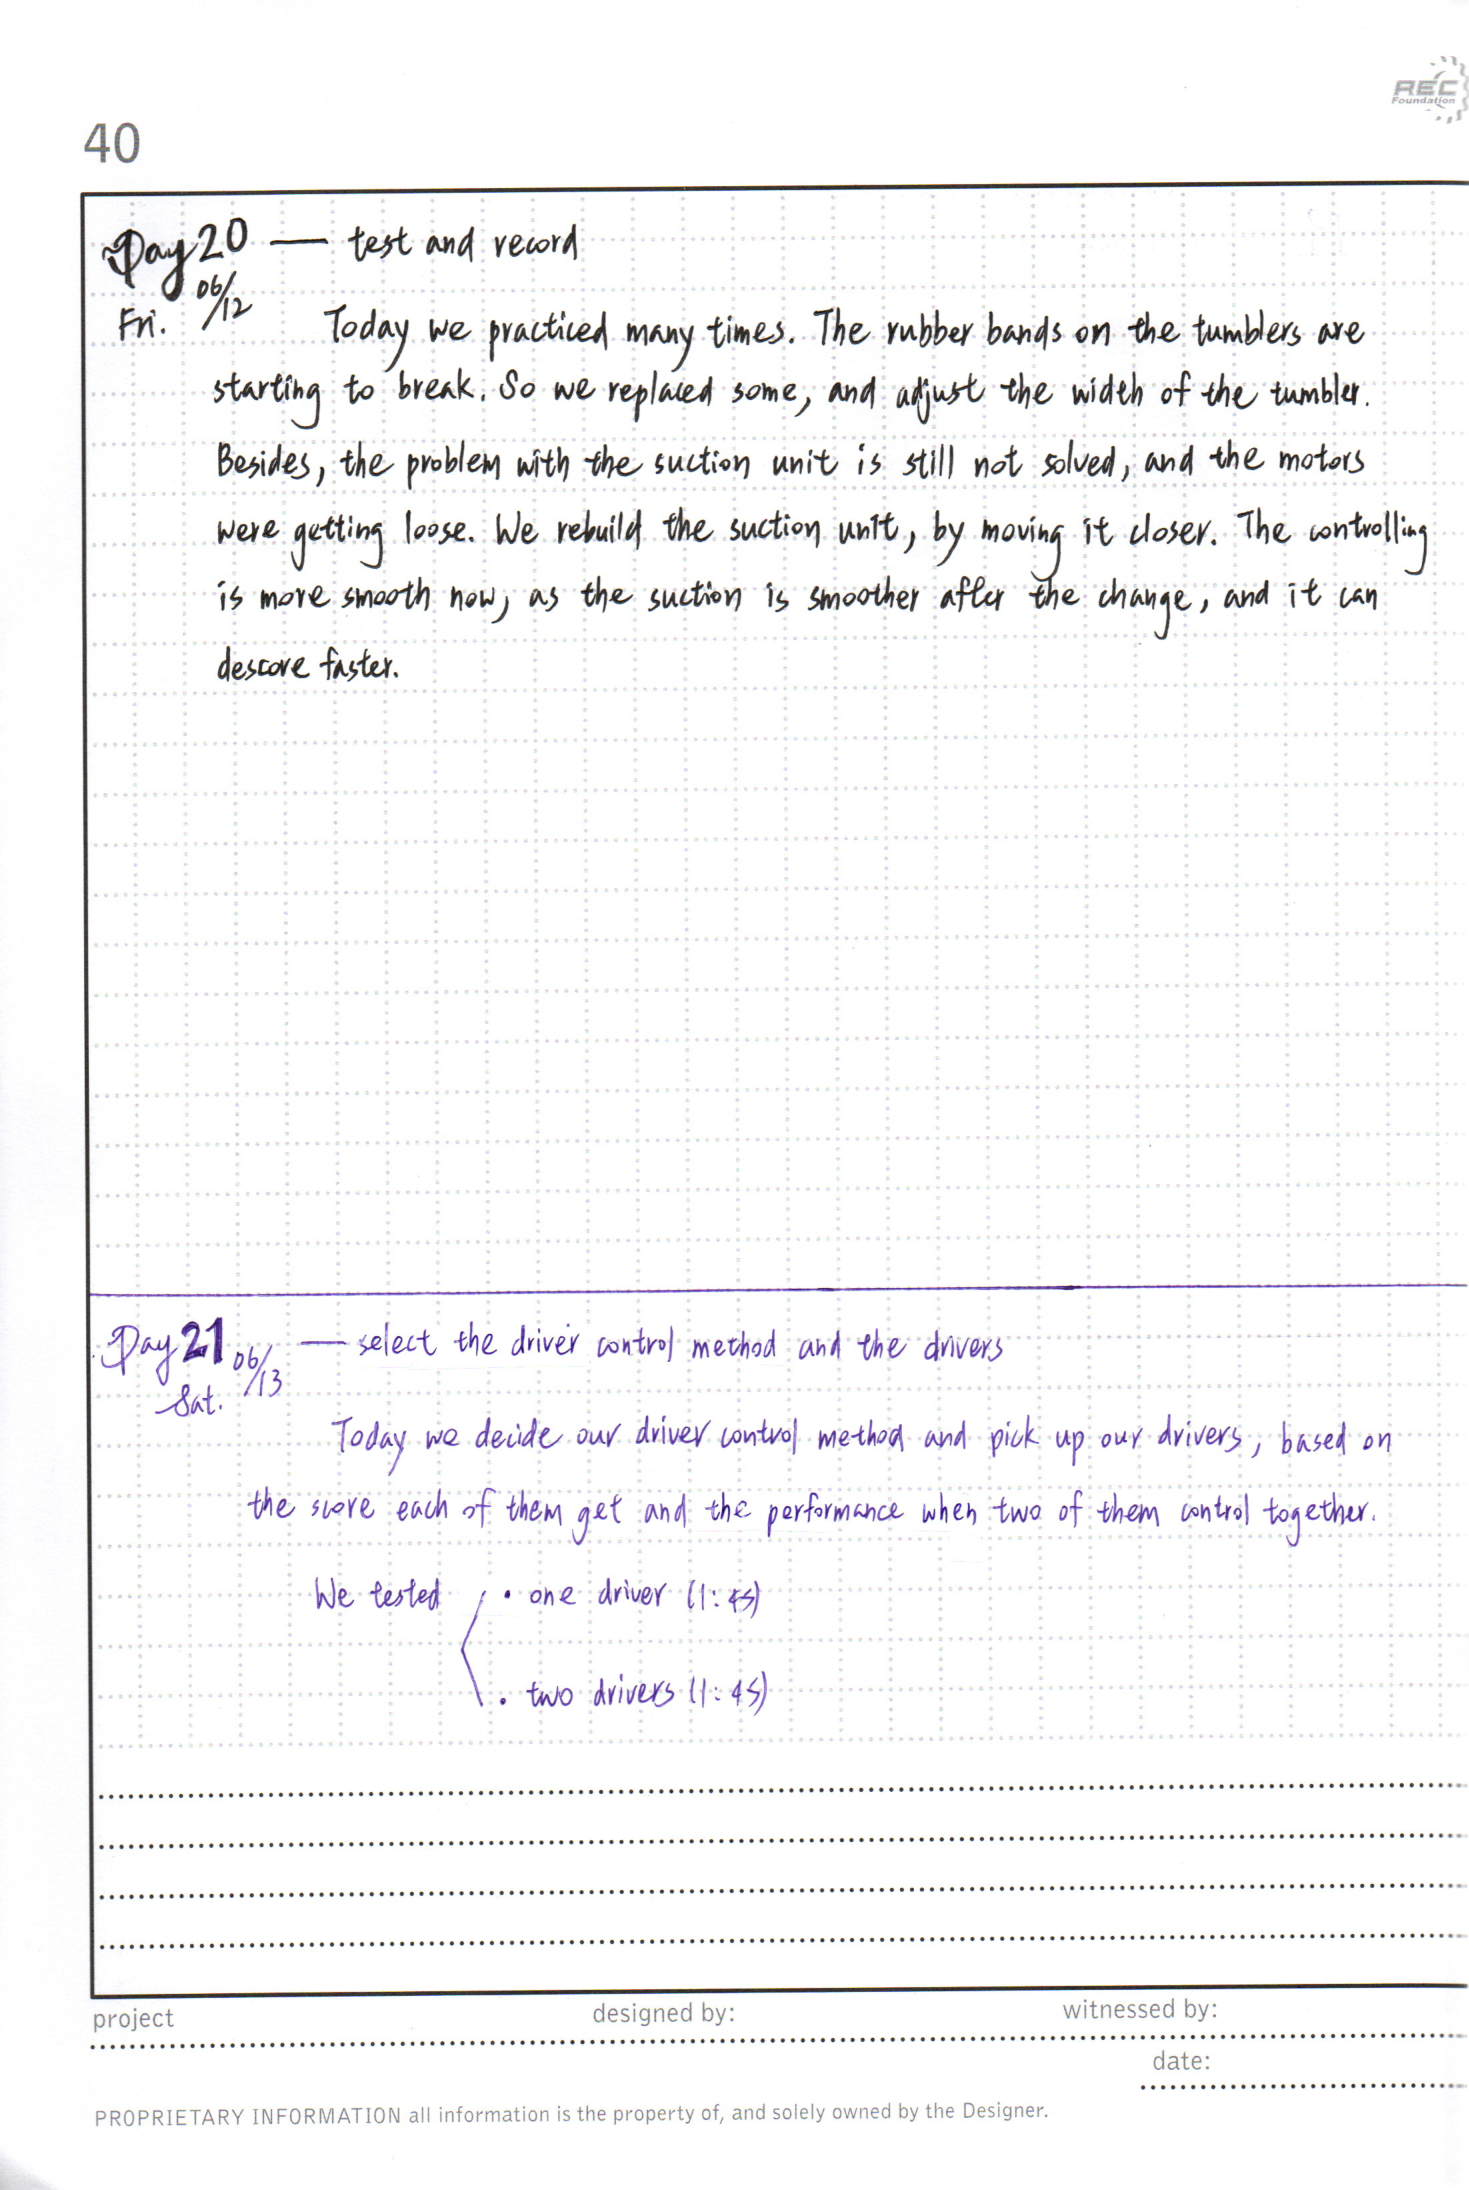 REC
Foundation
40
Day 20 — test and record
Fri. 06/12
Today we practiced many times. The rubber bands on the tumblers are
starting to break. So we replaced some, and adjust the width of the tumbler.
Besides, the problem with the suction unit is still not solved, and the motors
were getting loose. We rebuild the suction unit, by moving it closer. The controlling
is more smooth now, as the suction is smoother after the change, and it can
descore faster.
Day 21 06/13 — select the driver control method and the drivers
Sat.
Today we decide our driver control method and pick up our drivers, based on
the score each of them get and the performance when two of them control together.
We tested • one driver (1:45)
• two drivers (1:45)
project designed by: witnessed by:
date:
PROPRIETARY INFORMATION all information is the property of, and solely owned by the Designer.